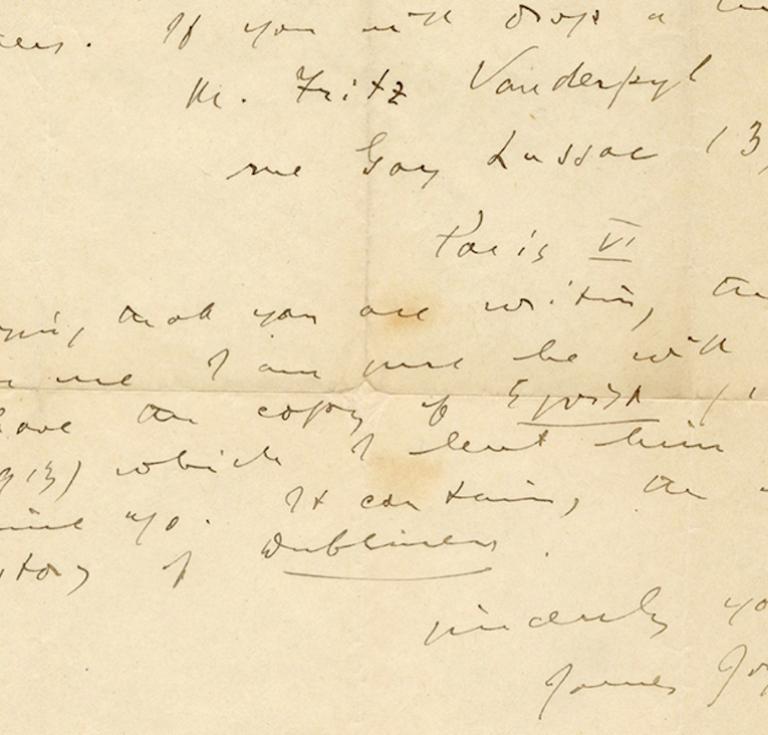 If you will drop a
M. Fritz Vanderpyl
rue Gay Lussac 13,
Paris VI
that you are writing, the
me I am sure he will
have the copy of Egoist (
913) which I lent him
time ago. It contains, the
story of Dubliners.
sincerely yo
James Joy